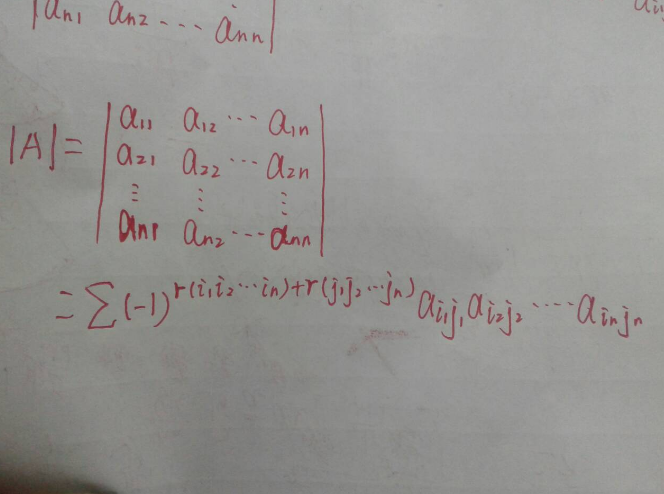 |a_{n1} a_{n2} ⋯ a_{nn}|
|A| = | a_{11} a_{12} ⋯ a_{1n}
a_{21} a_{22} ⋯ a_{2n}
⋮ ⋮ ⋮
a_{n1} a_{n2} ⋯ a_{nn} |
= ∑(-1)^{r(i_1i_2⋯i_n)+r(j_1j_2⋯j_n)} a_{i_1j_1}a_{i_2j_2}⋯⋯a_{i_nj_n}